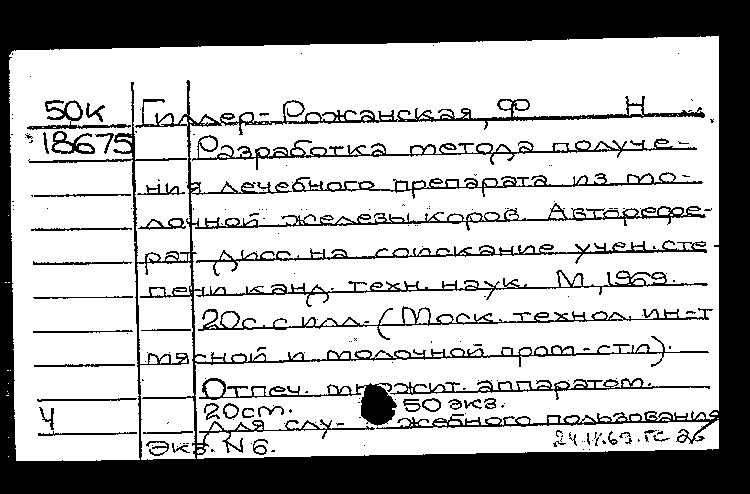 50К Гиллер-Рожанская, Ф Н
18675 Разработка метода получе-
ния лечебного препарата из мо-
лочной железы коров. Авторефе-
рат дисс. на соискание учен. сте-
пени канд. техн. наук. М., 1969.
20с. с илл. (Моск. технол. ин-т
мясной и молочной пром-сти).
Отпеч. множит. аппаратом.
20см. 50 экз.
Ч Для слу- жебного пользования
Экз. N 6.